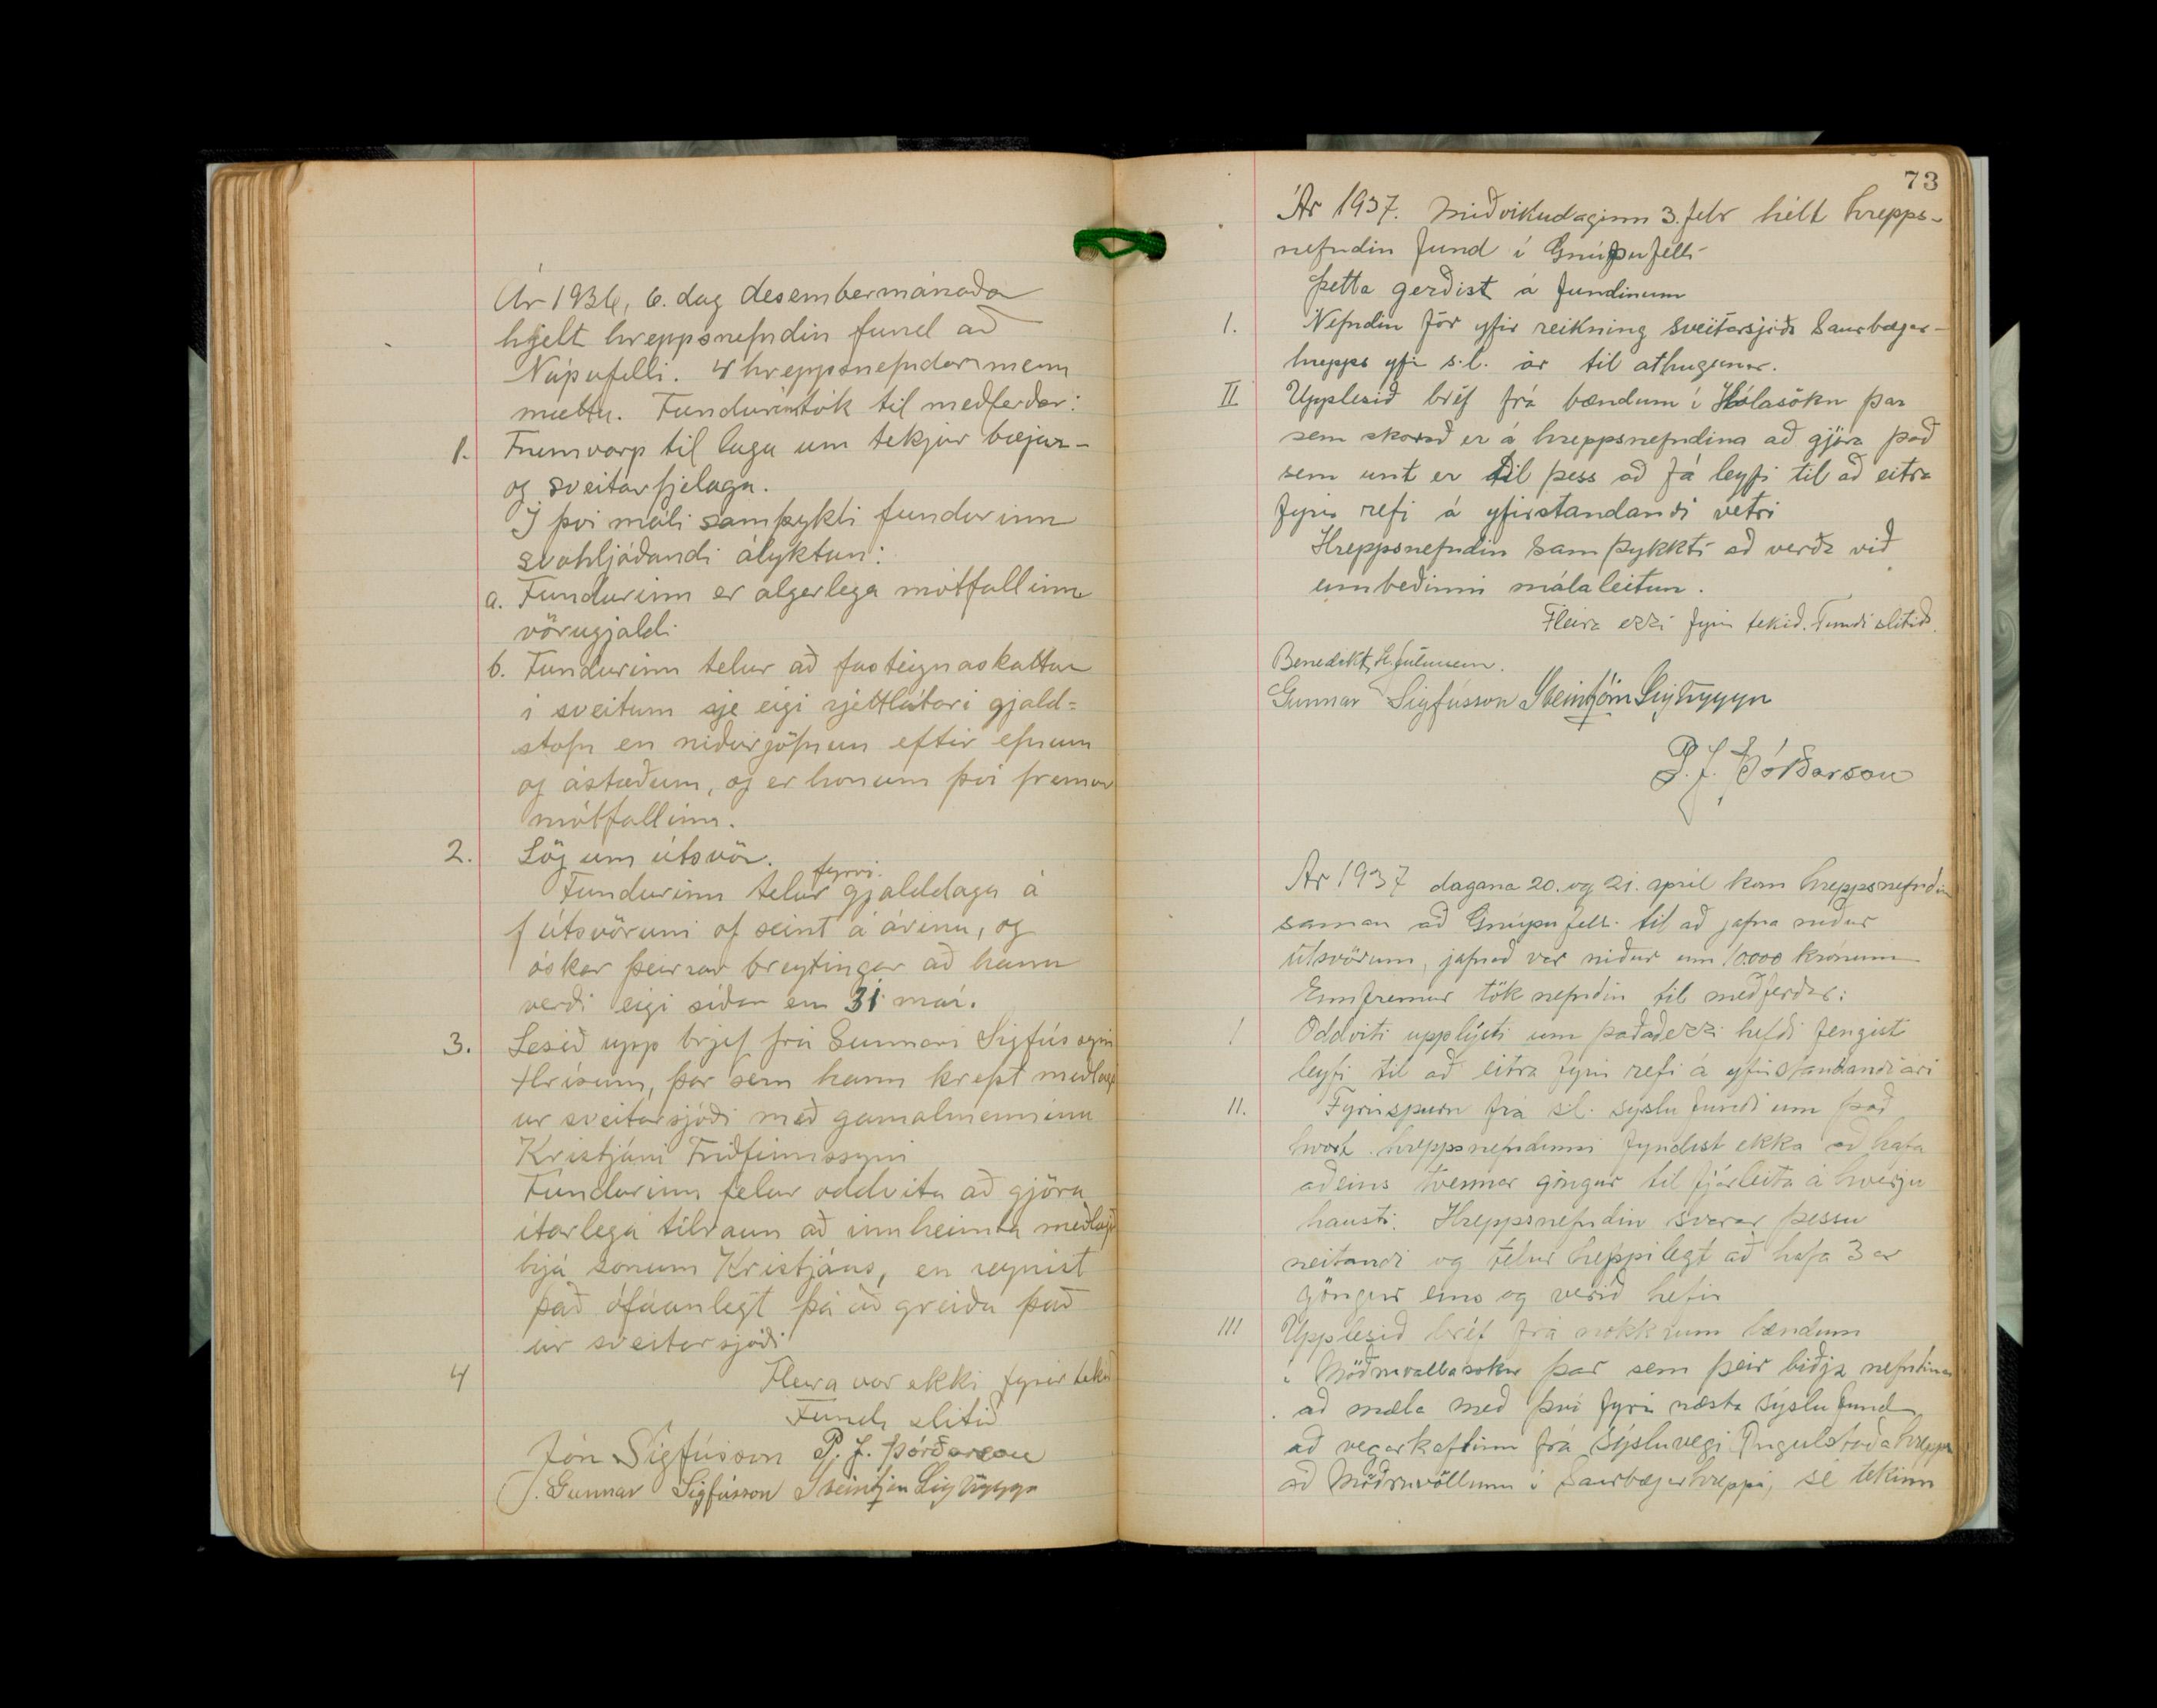 Ár 1936, 6. dag desembermánaða
hjelt hreppsnefndin fund að
Núpufelli. 4 hreppsnefndarmenn
mættu. Fundurinn tók til meðferðar:
1. Frumvarp til laga um tekjur bæjar-
og sveitarfjelaga.
Í því máli samþykti fundurinn
svohljóðandi ályktun:
a. Fundurinn er algerlega mótfallinn
vörugjaldi
b. Fundurinn telur að fasteignaskattur
í sveitum sje eigi rjettlátari gjald=
stofn en niðurjöfnun eftir efnum
og ástæðum, og er honum því fremur
mótfallinn.
2. Lög um útsvör.
fyrri
Fundurinn telur gjalddaga á
útsvörum of seint á árinu, og
óskar þeirrar breytingar að hann
verði eigi síðar en 31 maí.
3. Lesið upp brjef frá Gunnari Sigfússyni
Hrísum, þar sem hann krefst meðlags
úr sveitarsjóði með gamalmenninu
Kristjáni Friðfinnssyni
Fundurinn felur oddvita að gjöra
ítarlega tilraun að innheimta meðlag
hjá sonum Kristjáns, en reynist
það ófáanlegt þá að greiða það
úr sveitarsjóði
4 Fleira var ekki fyrir tekið
Fundi slitið
Jón Sigfússon P. J. Þórðarson
J. Gunnar Sigfússon Steinþór Sigtryggs
73
Ár 1937. Miðvikudaginn 3. febr hélt hrepps-
nefndin fund í Gnúpufelli
Þetta gerðist á fundinum
1. Nefndin fór yfir reikning sveitarsjóðs Saurbæjar-
hrepps yfir s.l. ár til athugunar.
II Upplesið bréf frá bændum í Hólasókn þar
sem skorað er á hreppsnefndina að gjöra það
sem unt er til þess að fá leyfi til að eitra
fyrir refi á yfirstandandi vetri
Hreppsnefndin samþykkti að verða við
umbeðinni málaleitun.
Fleira ekki fyrir tekið. Fundi slitið.
Benedikt H. Júlíusson.
Gunnar Sigfússon Steinþór Sigtryggs
P. J. Þórðarson
Ár 1937 dagana 20. og 21. apríl kom hreppsnefndin
saman að Gnúpufelli til að jafna niður
útsvörum, jafnað var niður um 10.000 krónum
Ennfremur tók nefndin til meðferðar:
I Oddviti upplýsti um það að ekki hefði fengist
leyfi til að eitra fyrir refi á yfirstandandi ári
II. Fyrirspurn frá s.l. sýslufundi um það
hvort hreppsnefndinni fyndist ekka að hafa
aðeins tvennar göngur til fjárleita á hverju
hausti. Hreppsnefndin svarar þessu
neitandi og telur heppilegt að hafa 3 ar
göngur eins og verið hefir
III Upplesið bréf frá nokkrum bændum
í Möðruvallasókn þar sem þeir biðja nefndina
að mæla með því fyrir næsta sýslufund
að vegarkaflinn frá sýsluvegi Öngulstaðahrepps
að Möðruvöllum í Saurbæjarhreppi, sé tekinn